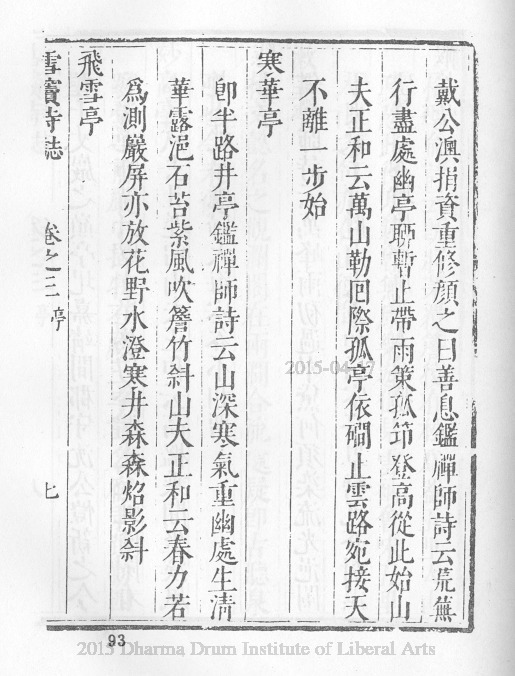 戴公澳捐資重修顏之曰善息鑑禪師詩云荒蕪
行盡處幽亭聊暫止帶雨策孤笻登高從此始山
夫正和云萬山勒囘際孤亭依磵止雲路宛接天
不離一步始
寒華亭
卽半路井亭鑑禪師詩云山深寒氣重幽處生淸
華露浥石苔紫風吹簷竹斜山夫正和云春力若
爲測嚴屏亦放花野水澄寒井森森焰影斜
飛雪亭
雪竇寺誌 卷之三 亭 七
2015-04-27
93
2015 Dharma Drum Institute of Liberal Arts